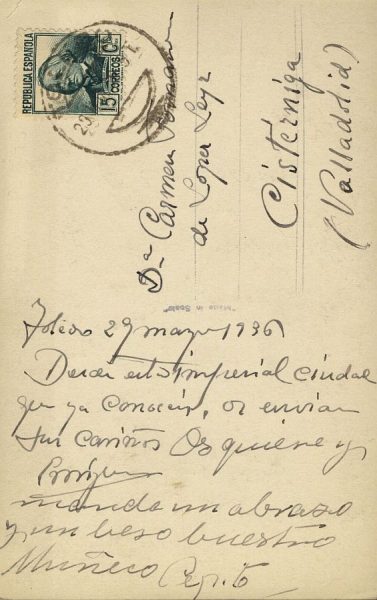 REPUBLICA ESPAÑOLA
15 Cts
CORREOS
Dª Carmen
de Lopez
Cistérniga
(Valladolid)
"Made in Spain"
Toledo 29 mayo 1936
Desde esta imperial ciudad
que ya conoceis, os envian
sus cariños Os quiere y
manda un abrazo
y un beso buestro
Muñeco Pepito